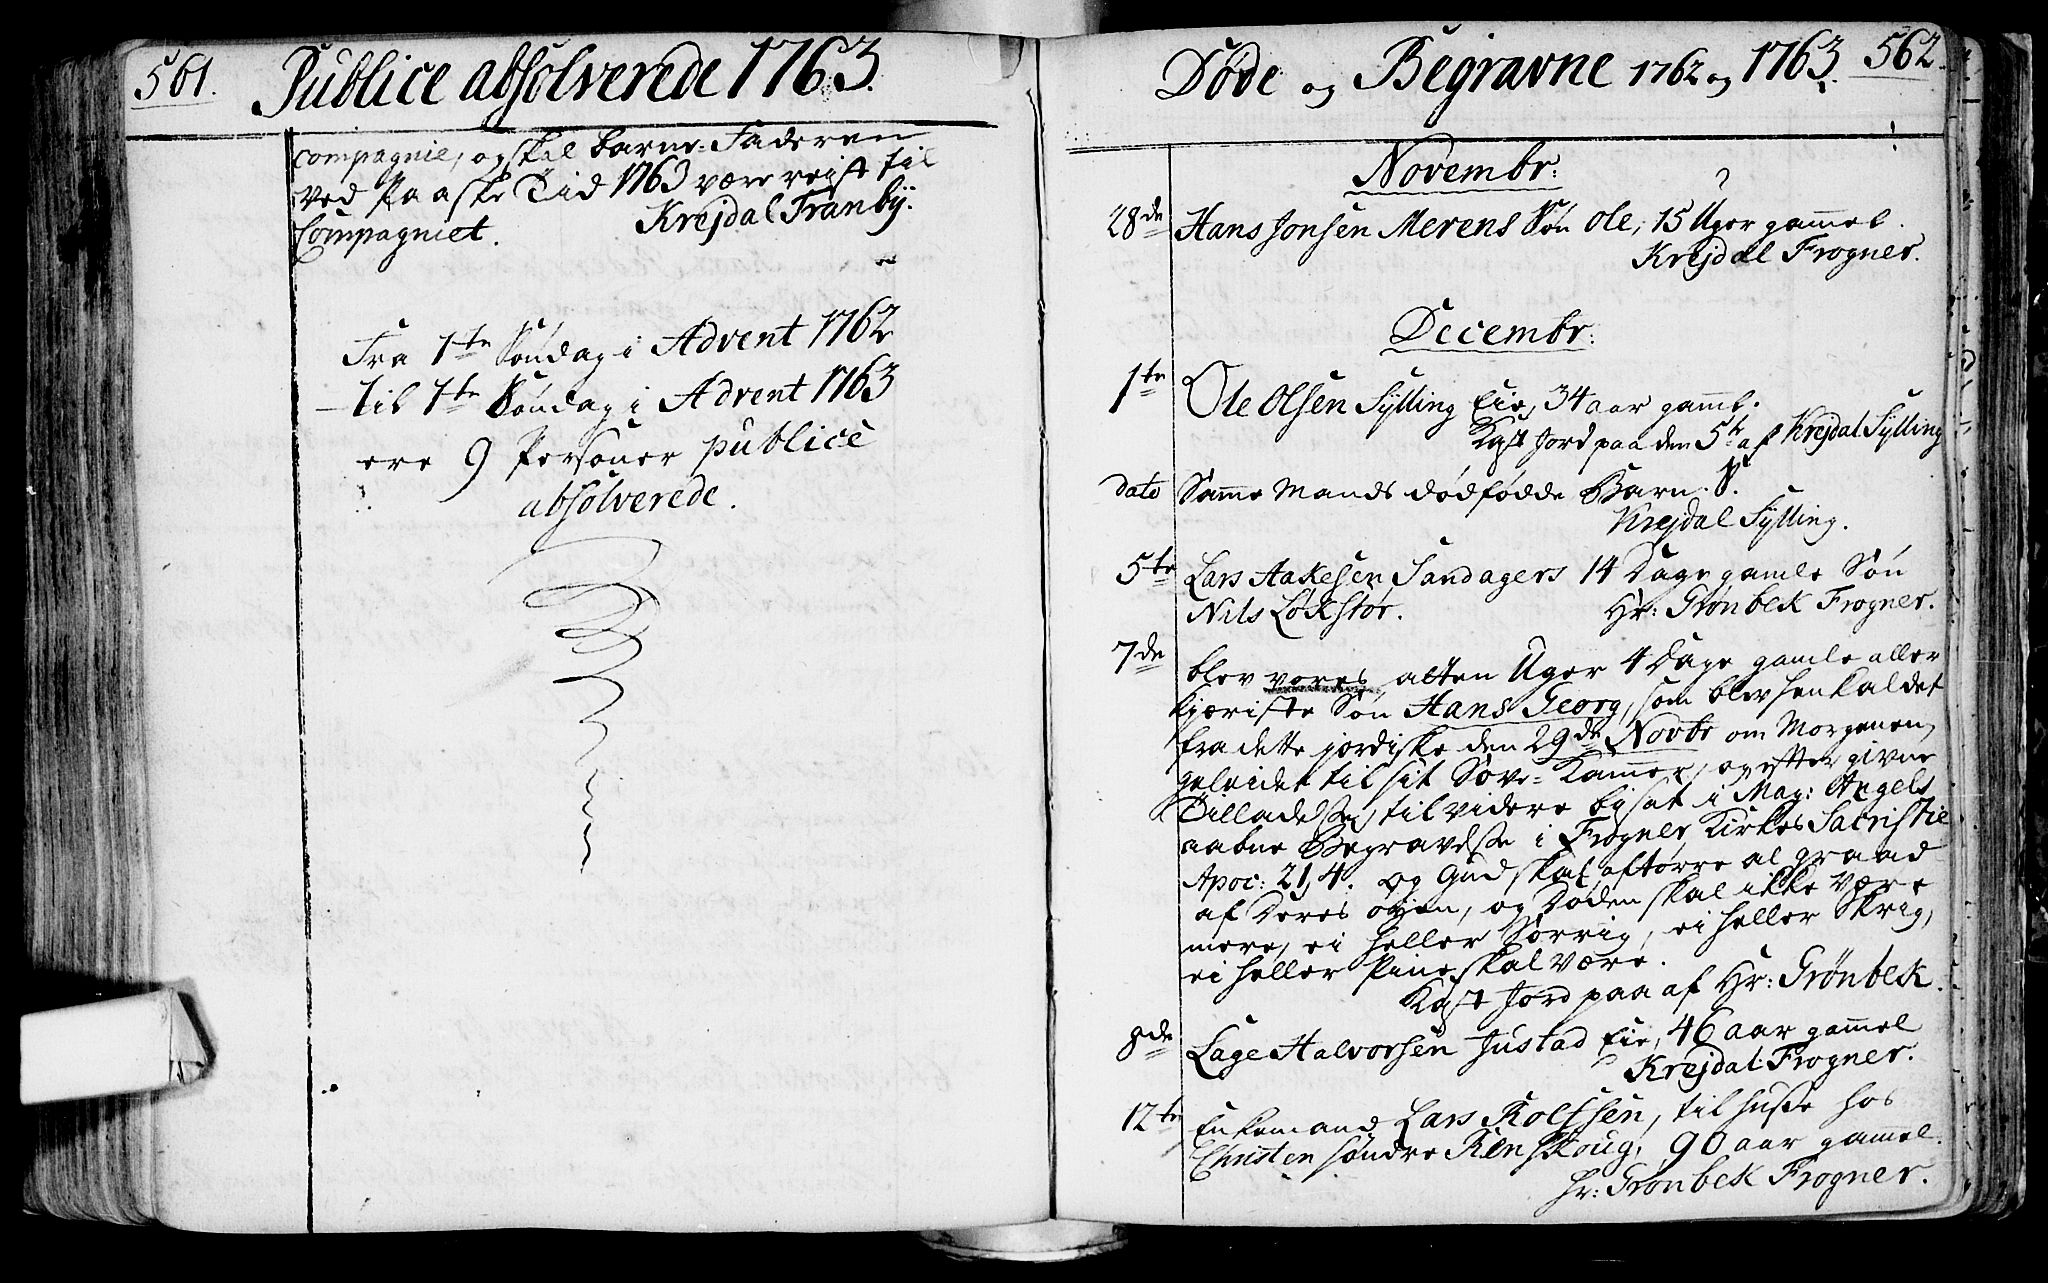 561.
Publice absolverede 1763.
compagnie, og skal Barne-Faderen
ved Paaske Tid 1763 være reist til
Compagniet. Krejdal Tranby.
Fra 1te Søndag i Advent 1762
til 1te Søndag i Advent 1763
ere 9 Personer publice
absolverede.
Døde og Begravne 1762 og 1763. 562.
Novembr:
28de Hans Jonsen Merens Søn Ole, 15 Uger gam̄el.
Krejdal Frogner.
Decembr:
1te Ole Olsen Sylling Eie, 34 aar gam̄l.
Kast Jord paa den 5te af Krejdal Sylling
dato Samme Mands dødfødde Barn.
Krejdal Sylling.
5te Lars Aakesen Sandagers 14 Dage gamle Søn
Nils Løkstør. Hr: Grønbek Frogner.
7de blev vores atten Uger 4 Dage gamle aller
kjæriste Søn Hans Georg, som blev henkaldet
fra dette jordiske den 29de Novbr om Morgenen,
geleidet til sit Sove-Kam̄er, og efter givne
Tilladelse, til videre bijsat i Mag: Angels
aabne Begravelse i Frogner Kirkes Sacristie
Apoc: 21,4. og Gud skal aftørre al graad
af Deres øyen, og Døden skal ikke være
mere, ei heller Sorrig, ei heller Skrig,
ei heller Pine skal være.
Kast Jord paa af Hr: Grønbek.
8de Lage Halvorsen Justad Eie, 46 aar gam̄el
Krejdal Frogner.
12te Enkemand Lars Rolfsen, til huße hos
Christen søndre Renskoug, 90 aar gam̄el.
Hr: Grønbek Frogner.